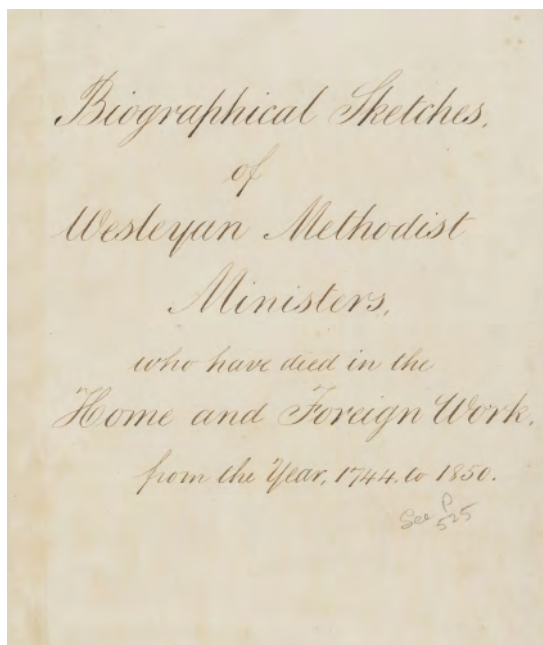 Biographical Sketches.
of
Wesleyan Methodist
Ministers,
who have died in the
Home and Foreign Work.
from the Year, 1744. to 1850.
See P
525